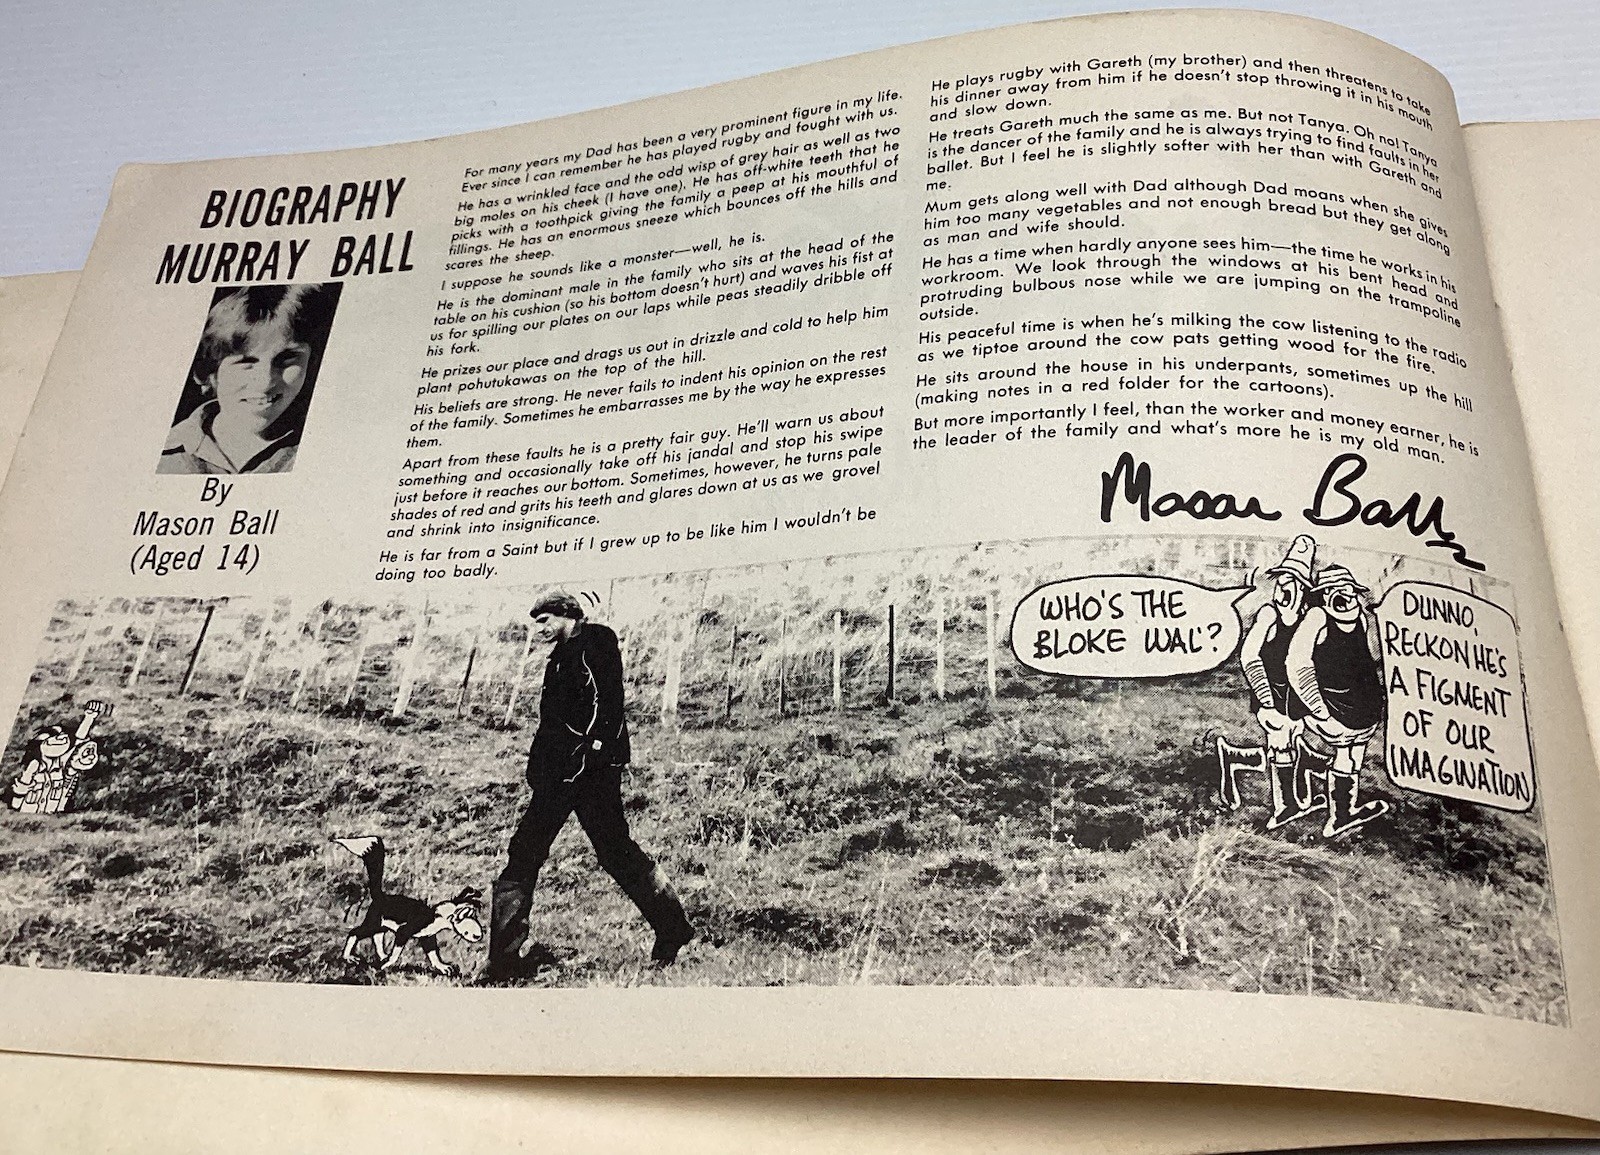 BIOGRAPHY
MURRAY BALL
By
Mason Ball
(Aged 14)
For many years my Dad has been a very prominent figure in my life.
Ever since I can remember he has played rugby and fought with us.
He has a wrinkled face and the odd wisp of grey hair as well as two
big moles on his cheek (I have one). He has off-white teeth that he
picks with a toothpick giving the family a peep at his mouthful of
fillings. He has an enormous sneeze which bounces off the hills and
scares the sheep.
I suppose he sounds like a monster—well, he is.
He is the dominant male in the family who sits at the head of the
table on his cushion (so his bottom doesn't hurt) and waves his fist at
us for spilling our plates on our laps while peas steadily dribble off
his fork.
He prizes our place and drags us out in drizzle and cold to help him
plant pohutukawas on the top of the hill.
His beliefs are strong. He never fails to indent his opinion on the rest
of the family. Sometimes he embarrasses me by the way he expresses
them.
Apart from these faults he is a pretty fair guy. He'll warn us about
something and occasionally take off his jandal and stop his swipe
just before it reaches our bottom. Sometimes, however, he turns pale
shades of red and grits his teeth and glares down at us as we grovel
and shrink into insignificance.
He is far from a Saint but if I grew up to be like him I wouldn't be
doing too badly.
He plays rugby with Gareth (my brother) and then threatens to take
his dinner away from him if he doesn't stop throwing it in his mouth
and slow down.
He treats Gareth much the same as me. But not Tanya. Oh no! Tanya
is the dancer of the family and he is always trying to find faults in her
ballet. But I feel he is slightly softer with her than with Gareth and
me.
Mum gets along well with Dad although Dad moans when she gives
him too many vegetables and not enough bread but they get along
as man and wife should.
He has a time when hardly anyone sees him—the time he works in his
workroom. We look through the windows at his bent head and
protruding bulbous nose while we are jumping on the trampoline
outside.
His peaceful time is when he's milking the cow listening to the radio
as we tiptoe around the cow pats getting wood for the fire.
He sits around the house in his underpants, sometimes up the hill
(making notes in a red folder for the cartoons).
But more importantly I feel, than the worker and money earner, he is
the leader of the family and what's more he is my old man.
Mason Ball
WHO'S THE
BLOKE WAL?
DUNNO,
RECKON HE'S
A FIGMENT
OF OUR
IMAGINATION